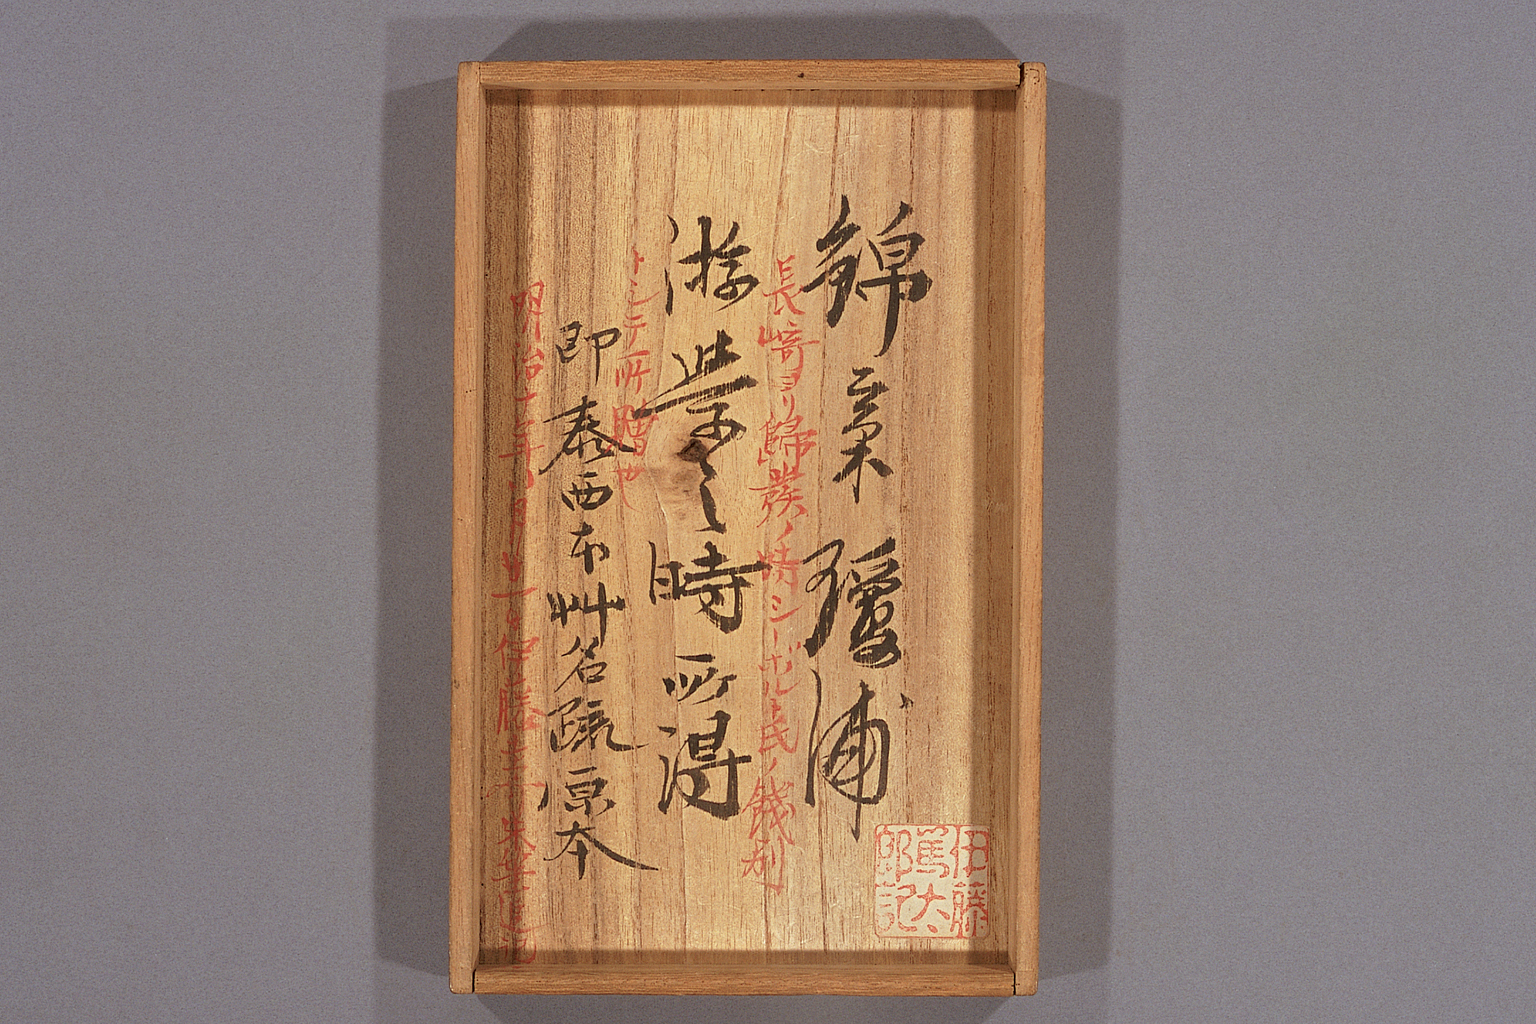 錦窠瓊浦
長崎ヨリ歸襆ノ時シーボルト氏ノ餞別
游学之時所得
トシテ所贈也
即泰西本艸名疏原本
明治十年 月廿一日伊藤圭介朱筆追記
伊藤
篤太
郎記